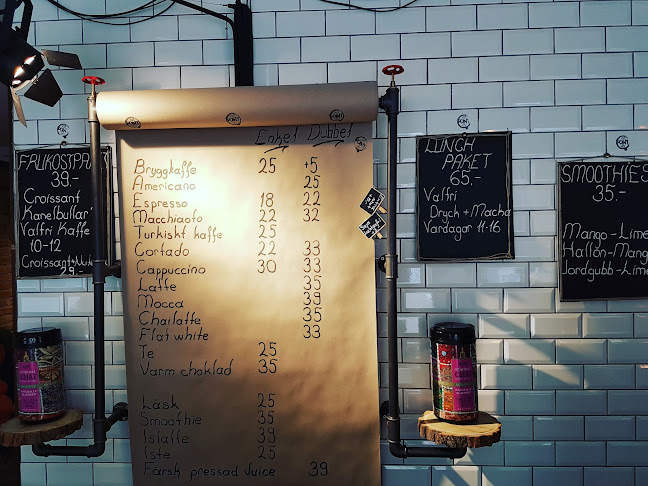 FRUKOSTPAKET
39.-
Croissant
Kanelbullar
Valfri Kaffe
10-12
29.-
Enkel Dubbel
Bryggkaffe 25 +5
Americano 25
Espresso 18 22
Macchiaoto 22 32
Turkiskt kaffe 25
Cortado 22 33
Cappuccino 30 33
Latte 35
Mocca 39
Chailatte 35
Flat white 33
Te 25
Varm choklad 35
Läsk 25
Smoothie 35
Islatte 39
Iste 25
Färsk pressad Juice 39
LUNCH
PAKET
65.-
Valfri
Dryck + Macka
Vardagar 11-16
SMOOTHIES
35.-
Mango-Lime
Hallon-Mango
Jordgubb-Lime